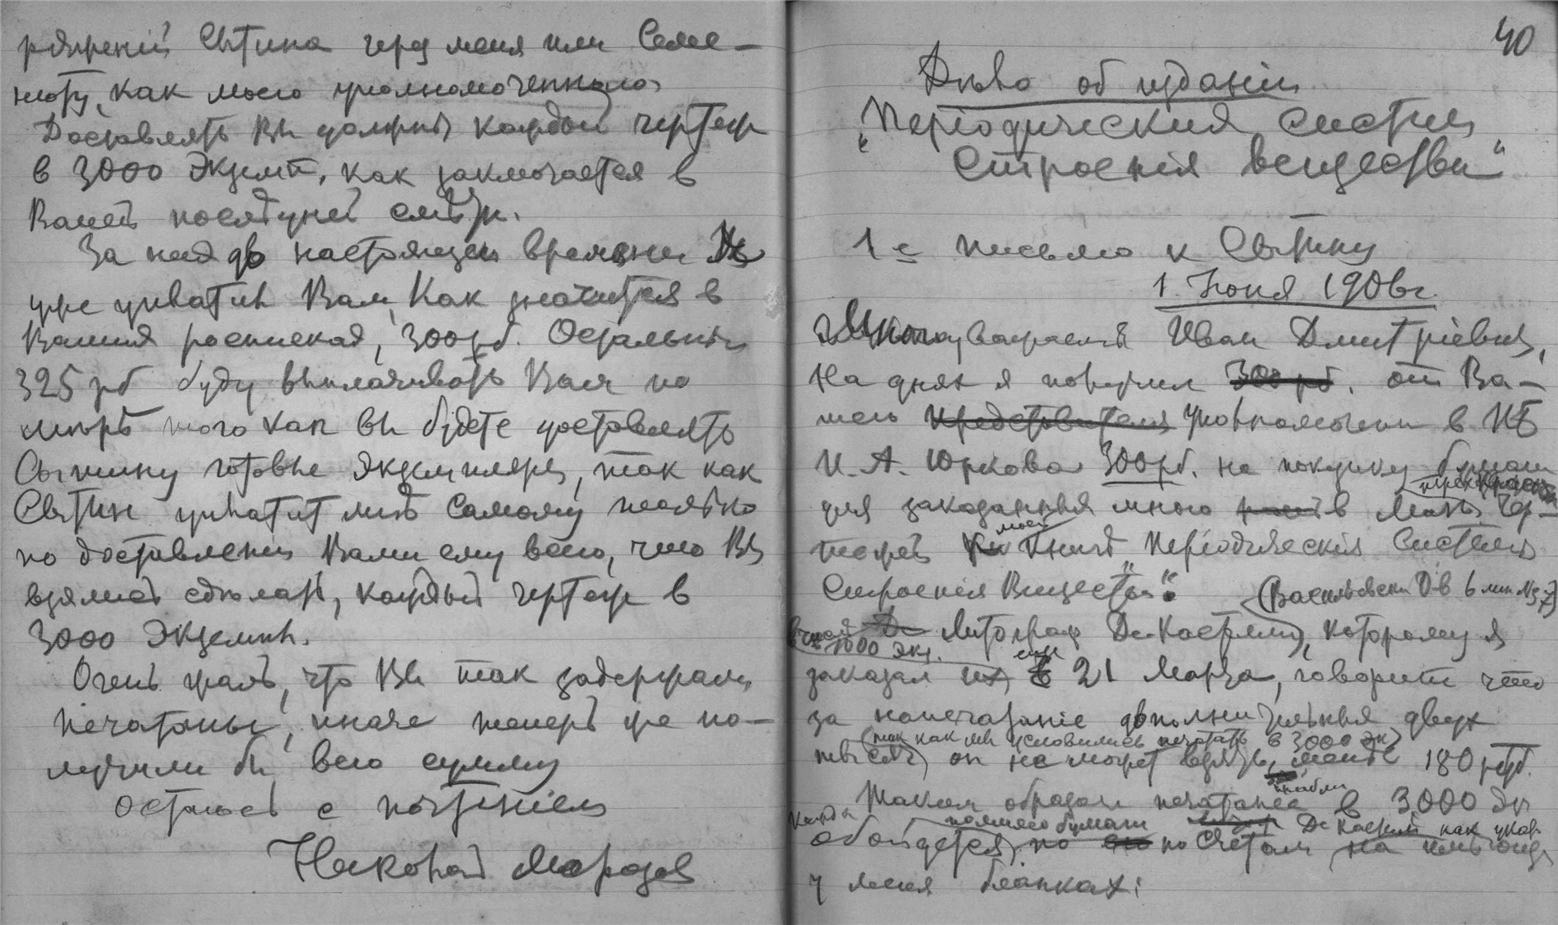 Сытина через меня или
как моего уполномоченнаго
Доставлять Вы должны каждый чертеж
в 3000 Экземп. как заключается в
Вашей послѣдней смѣтѣ.
За них до настоящаго времени Я
уже уплатил Вам, как значится в
Ваших росписках, 300 рб. Остальные
325 рб буду выплачивать Вам по
мѣрѣ того как вы будете доставлять
Сытину готовые экземпляры, так как
Сытин уплатит мнѣ самому только
по доставлении Вами ему всего, что Вы
взялись сдѣлать, каждый чертеж в
3000 Экземпл.
Очень жаль, что Вы так задержали
печатаньем, иначе теперь уже по-
лучили бы всю сумму
Остаюсь с почтеніем
Николай Морозов
40
Дѣло об изданіи
„Періодическия системы
строенія вещества“
1е письмо к Сытину
1 Іюня 1906 г.
Многоуважаемый Иван Дмитріевич,
На днях я получил 300 рб. от Ва-
шего представителя уполномоченнаго в ПБ
И. А. Юркова 300 рб. на покупку бумаги
для заказанных мною в чер-
тежей моей книги Періодическия Системы
Строенія Вещества“.
(Васильевский О-в 6 лин. №
Литограф Де Кастелли, которому я
1000 экз.
заказал их еще 21 Марта, говорит что
за напечатаніе дополнительных двух
(так как мы условились печатать в 3000 эк)
тысяч, он не может взять менѣе 180 руб.
Таким образом печатанье в 3000 экз
помимо бумаги Де Кастелли как указ.
обойдется по счетам на имѣющихся
у меня бланках: